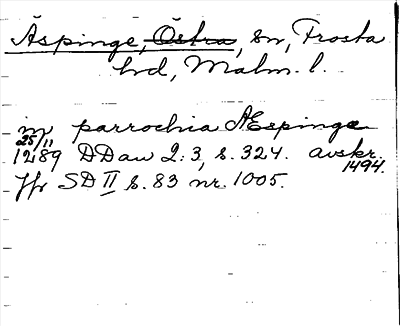 Äspinge, Östra, sn, Frosta
hd, Malm. l.
in parrochia AEspinge
25/11
1289 DDan 2:3, s. 324. avskr.
1494.
Jfr SD II s. 83 nr 1005.